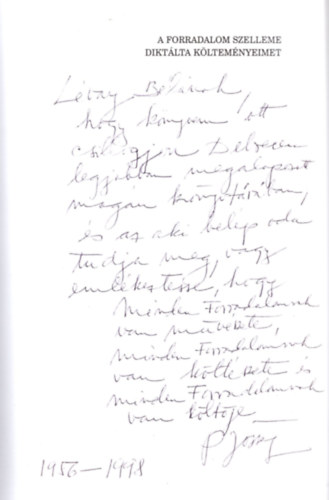 A FORRADALOM SZELLEME
DIKTÁLTA KÖLTEMÉNYEIMET
Lévay Bélának,
hogy könyvem ott
csillogjon Debrecen
legjobban megalapozott
magán könyvtárában,
és az aki belép oda
tudja meg, vagy
emlékeztesse, hogy
minden Forradalomnak
van művészete,
minden Forradalomnak
van költészete és
minden Forradalomnak
van költője
1956–1998